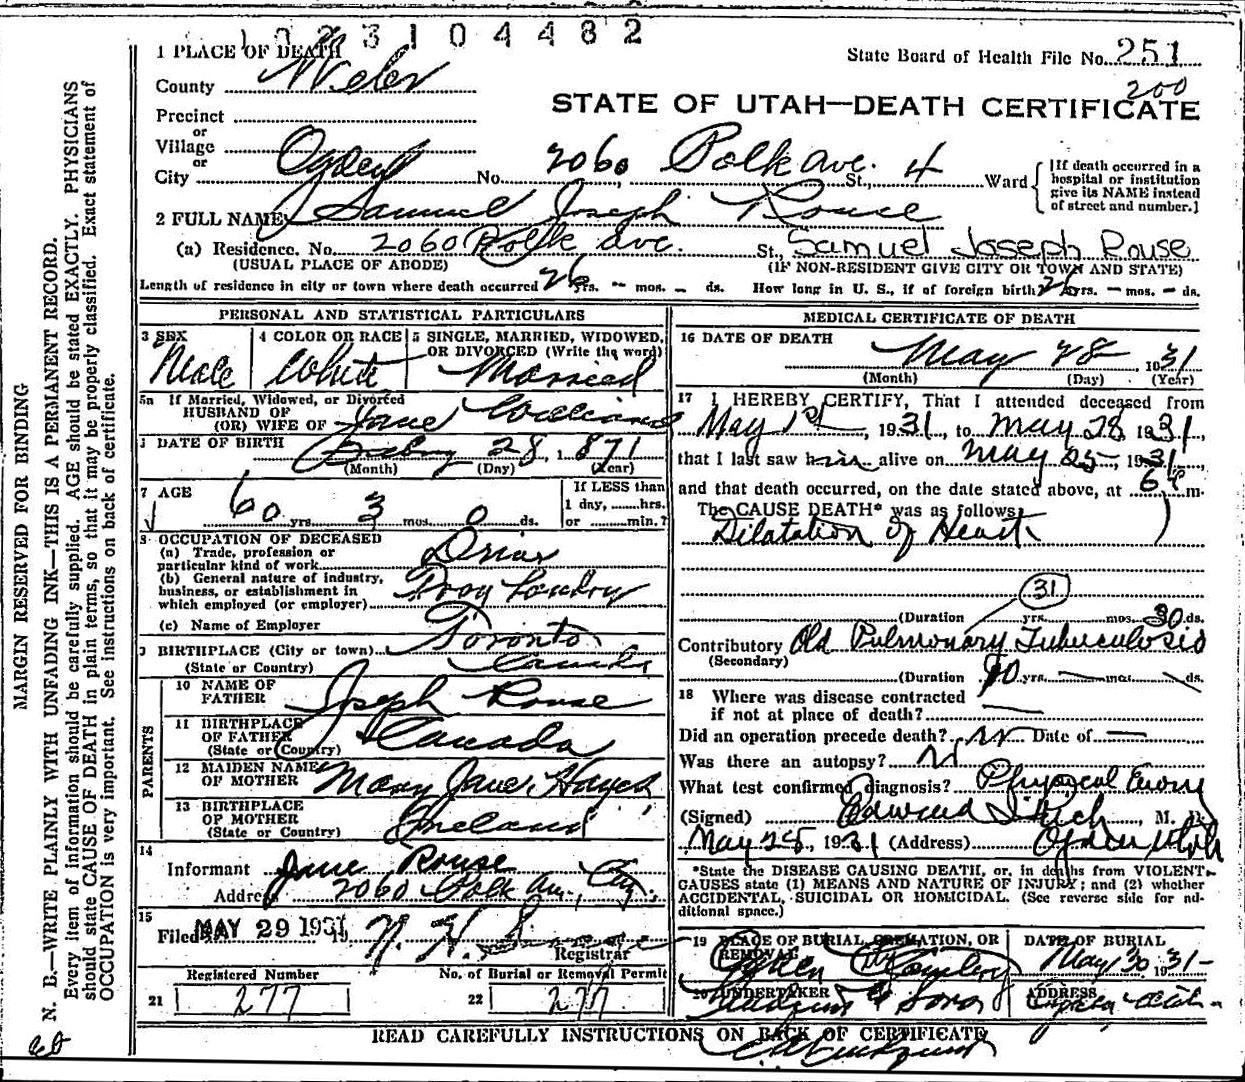 1 0 2 3 1 0 4 4 8 2
1 PLACE OF DEATH
State Board of Health File No. 251
200
County Weber
STATE OF UTAH—DEATH CERTIFICATE
Precinct
or
Village
or
City Ogden No. 2060 Polk Ave. St., 4 Ward
[If death occurred in a hospital or institution give its NAME instead of street and number.]
2 FULL NAME Samuel Joseph Rouse
(a) Residence. No. 2060 Polk Ave. St., Samuel Joseph Rouse
(USUAL PLACE OF ABODE) (IF NON-RESIDENT GIVE CITY OR TOWN AND STATE)
Length of residence in city or town where death occurred 26 yrs. – mos. – ds. How long in U. S., if of foreign birth? 26 yrs. – mos. – ds.
PERSONAL AND STATISTICAL PARTICULARS
3 SEX Male
4 COLOR OR RACE White
5 SINGLE, MARRIED, WIDOWED, OR DIVORCED (Write the word) Married
5a If Married, Widowed, or Divorced
HUSBAND OF
(OR) WIFE OF Jane Williams
DATE OF BIRTH 28, 1871
(Month) (Day) (Year)
7 AGE 60 yrs. 3 mos. 0 ds.
If LESS than 1 day, ......hrs. or ......min.?
8 OCCUPATION OF DECEASED
(a) Trade, profession or particular kind of work Driver
(b) General nature of industry, business, or establishment in which employed (or employer) Troy Laundry
(c) Name of Employer
9 BIRTHPLACE (City or town) Toronto
(State or Country) Canada
PARENTS
10 NAME OF FATHER Joseph Rouse
11 BIRTHPLACE OF FATHER (State or Country) Canada
12 MAIDEN NAME OF MOTHER Mary Jane
13 BIRTHPLACE OF MOTHER (State or Country) Ireland
14
Informant Jane Rouse
Address 2060 Polk Av. City
15
Filed MAY 29 1931 19
Registrar
Registered Number
21 277
No. of Burial or Removal Permit
22 277
MEDICAL CERTIFICATE OF DEATH
16 DATE OF DEATH
May 28, 1931
(Month) (Day) (Year)
17 I HEREBY CERTIFY, That I attended deceased from
May 1st, 1931, to May 28 1931,
that I last saw him alive on May 25, 1931,
and that death occurred, on the date stated above, at 6 m.
The CAUSE DEATH* was as follows:
Dilatation of Heart
31
(Duration yrs. mos. 30 ds.
Contributory Old Pulmonary Tuberculosis
(Secondary)
(Duration yrs. mos. ds.
18 Where was disease contracted
if not at place of death?
Did an operation precede death? no Date of —
Was there an autopsy? No
What test confirmed diagnosis? Physical
(Signed) Edward I Rich, M. D.
May 28, 1931 (Address) Ogden Utah
*State the DISEASE CAUSING DEATH, or, in deaths from VIOLENT CAUSES state (1) MEANS AND NATURE OF INJURY; and (2) whether ACCIDENTAL, SUICIDAL OR HOMICIDAL. (See reverse side for additional space.)
19 PLACE OF BURIAL, CREMATION, OR REMOVAL
Ogden City Cemetery
DATE OF BURIAL
May 30 1931
20 UNDERTAKER
& Sons
ADDRESS
Ogden Utah
READ CAREFULLY INSTRUCTIONS ON BACK OF CERTIFICATE
MARGIN RESERVED FOR BINDING
N. B.—WRITE PLAINLY WITH UNFADING INK—THIS IS A PERMANENT RECORD.
Every item of information should be carefully supplied. AGE should be stated EXACTLY. PHYSICIANS
should state CAUSE OF DEATH in plain terms, so that it may be properly classified. Exact statement of
OCCUPATION is very important. See instructions on back of certificate.